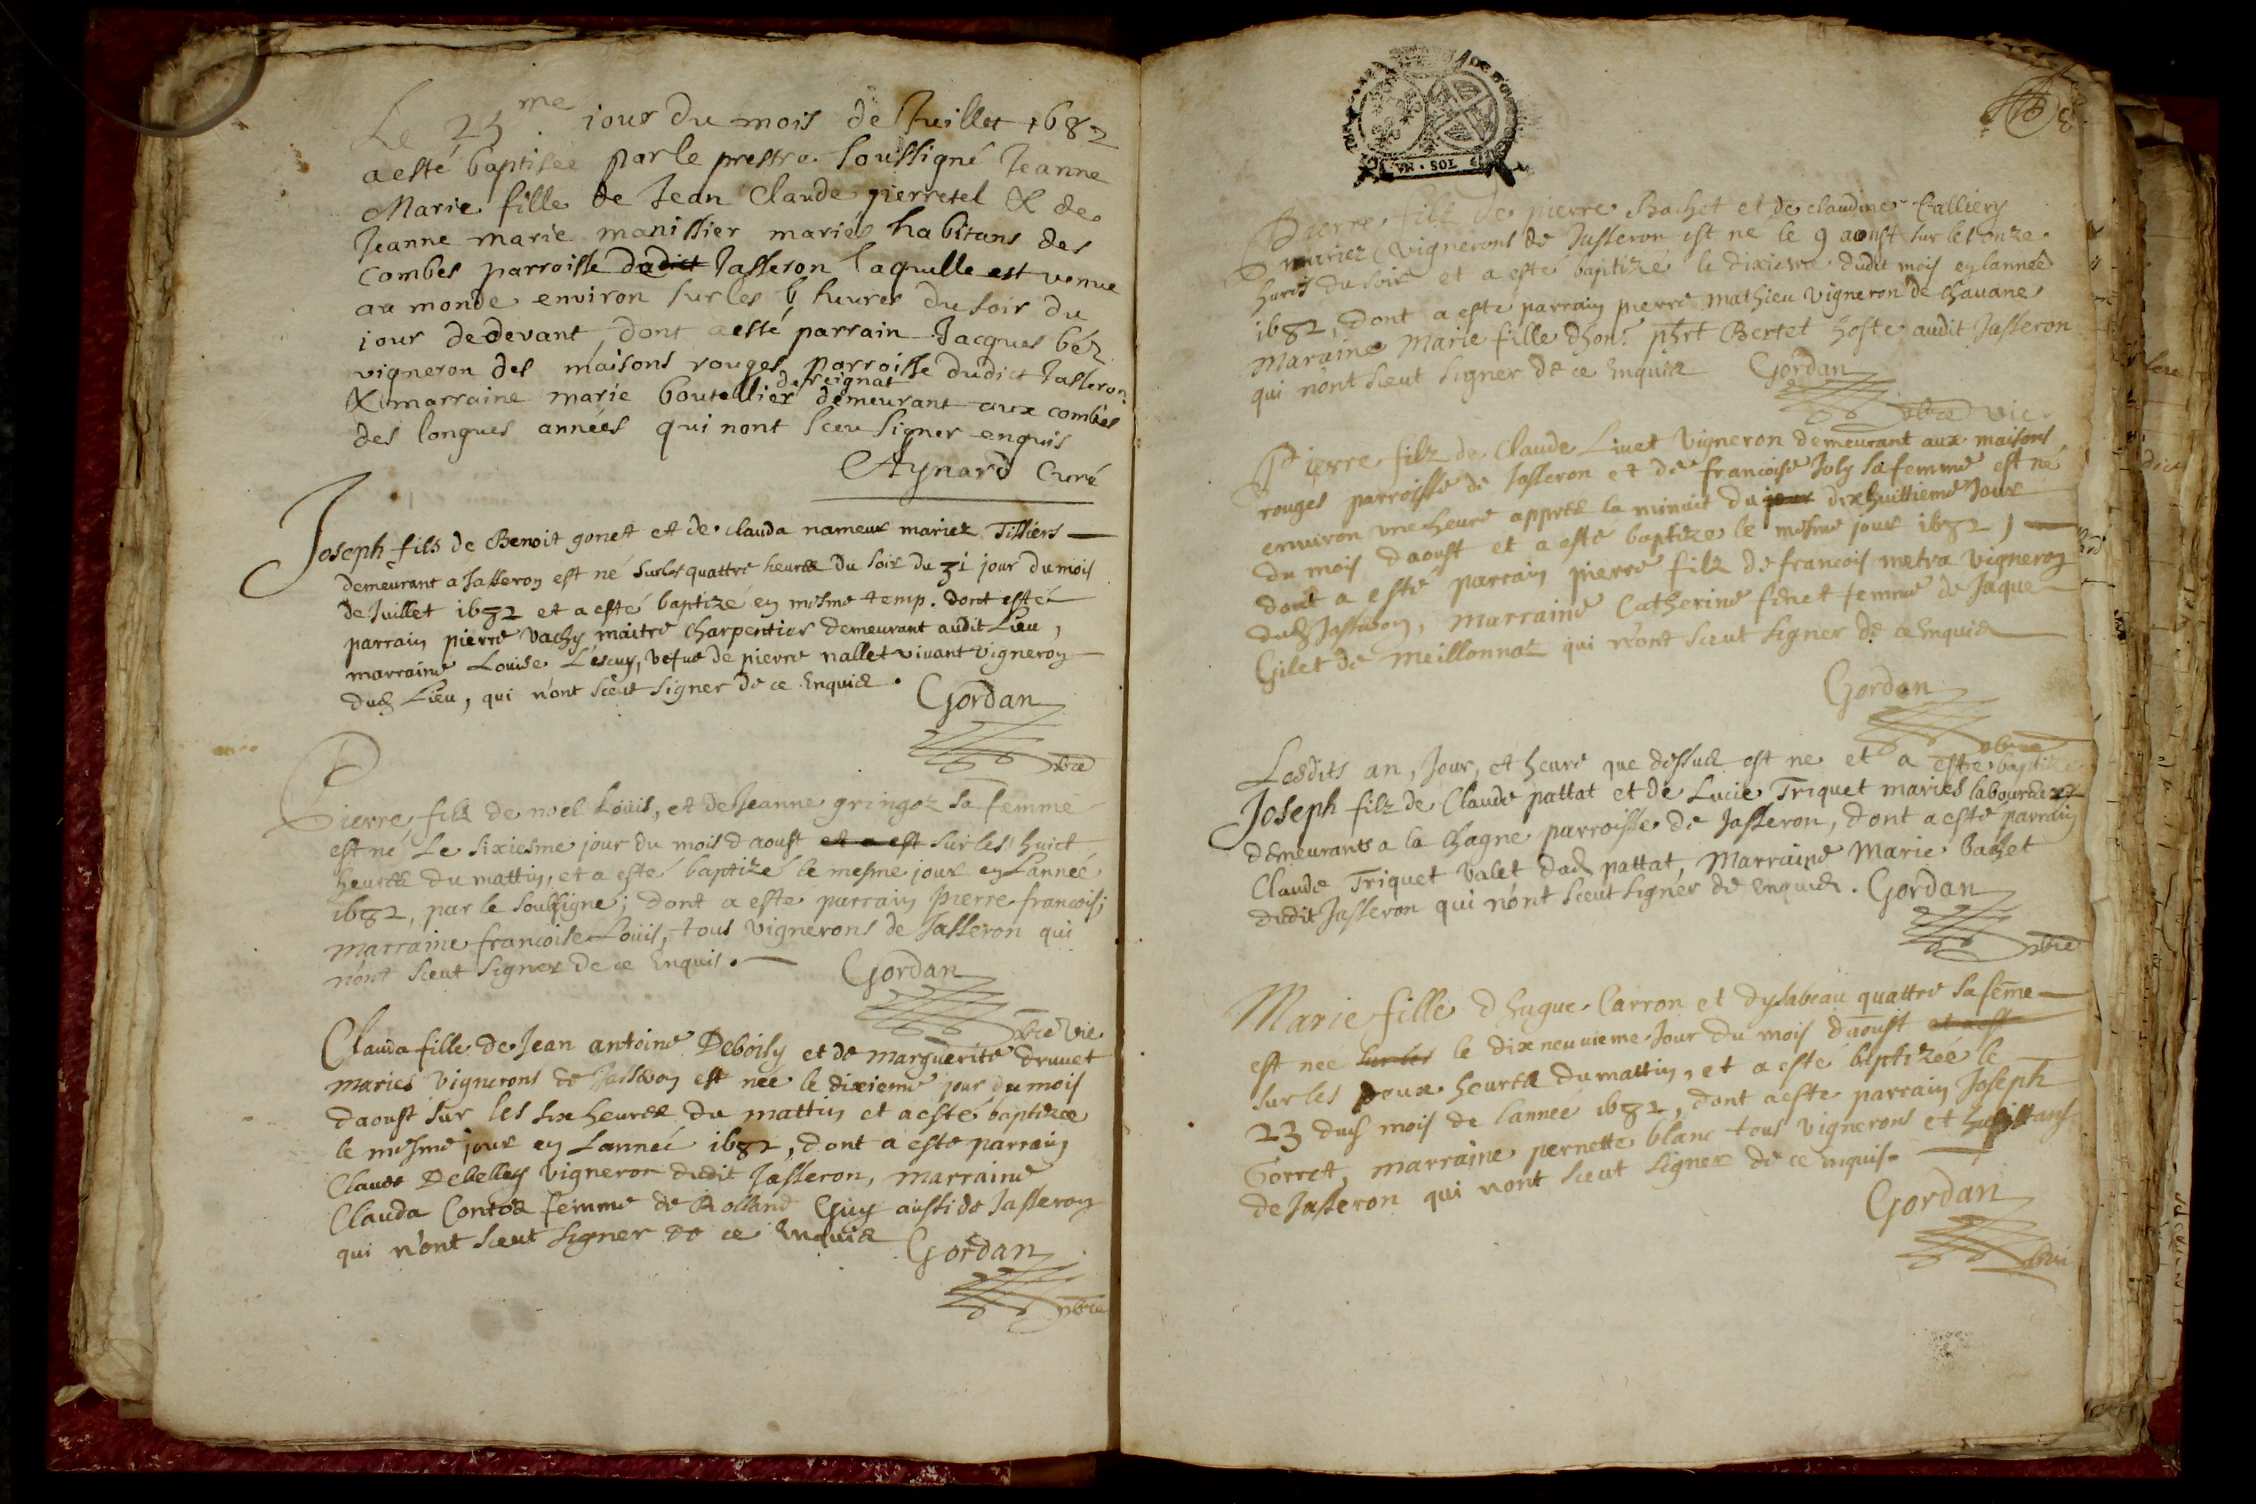 Le 25me jour du mois de Juillet 1682
a esté baptisée par le prestre soussigné Jeanne
Marie fille de Jean Claude pierretel & de
Jeanne marie manissier mariés habitans des
Combes parroisse dudict Jasseron laquelle est venue
au monde environ sur les 6 heures du soir du
jour de devant, dont a esté parrain Jacques béz
vigneron des maisons rouges parroisse dudict Jasseron
de reignat
& marraine marie boutellier demeurant aux combes
des longues années qui nont sceu signer enquis
Aynard Curé
Joseph fils de Benoit gonet et de Clauda nameur mariez Tissiers
demeurant a Jasseron est né sur les quattre heures du soir du 31 jour du mois
de Juillet 1682 et a esté baptizé en mesme temp. dont esté
parrain pierre vachy maitre charpentier demeurant audit Lieu,
marraine Louise Lescuy, vefue de pierre nallet vivant vigneron
dud Lieu, qui n'ont sceut signer de ce Enquis.
Gordan
pbre
Pierre filz de noel Louis, et de Jeanne gringoz sa femme
est né Le sixiesme jour du mois d'aoust et a est sur les huict
heures du mattin, et a esté baptizé le mesme jour en Lannée
1682, par le soussigne; dont a esté parrain pierre francois;
marraine francoise Louis, tous vignerons de Jasseron qui
n'ont sceut signer de ce Enquis.
Gordan
pbre vic
Clauda fille de Jean antoine Deboisy et de marguerite druuet
mariés vignerons de Jasseron est née le dixieme jour du mois
daoust sur les six heures du mattin et a esté baptizee
le mesme jour en Lannée 1682, dont a esté parrain
Claude Debelley vigneron dudit Jasseron, marraine
Clauda Contos femme de Rolland Guy aussi de Jasseron
qui n'ont sceut signer de ce Enquis
Gordan
pbre
VN · SOL
Pierre filz de pierre Bachet et de claudine Calliery
mariez vignerons de Jasseron est ne le 9 aoust sur les onze
hures du soir et a esté baptizé le dixieme dudit mois en lannée
1682, dont a esté parrain pierre mathieu vigneron de chavane
maraine Marie fille dhon. phrt Bertet hoste audit Jasseron
qui n'ont sceut signer de ce Enquis
Gordan
pbre vic
Pierre filz de Claude Livet vigneron demeurant aux maisons
rouges parroisse de Jasseron et de francoise Joly sa femme est né
environ vne heure apprés la minuit du jour dixhuittieme Jour
du mois daoust et a esté baptize le mesme jour 1682,
dont a esté parrain pierre filz de francois metra vigneron
dud Jasseron, marraine Catherine finet femme de Jaque
Gilet de meillonnaz qui n'ont sceut signer de ce Enquis
Gordan
pbre
Lesdits an, Jour, et heure que dessus est ne et a estre baptize
Joseph filz de Claude pattat et de Lucie Triquet mariés laboureurs
demeurants a la chagne parroisse de Jasseron, dont a esté parrain
Claude Triquet valet dud pattat, Marraine Marie bachet
dudit Jasseron qui n'ont sceut signer de Enquis.
Gordan
pbre
Marie fille d'hugue Carron et dysabeau quattre sa feme
est nee sur les le dixneuvieme Jour du mois daoust et a est
sur les deux heures du mattin, et a esté baptizée le
23 dud mois de lannée 1682, dont a esté parrain Joseph
Gorret, marraine pernette blanc tous vignerons et habittans
de Jasseron qui n'ont sceut signer de ce enquis.
Gordan